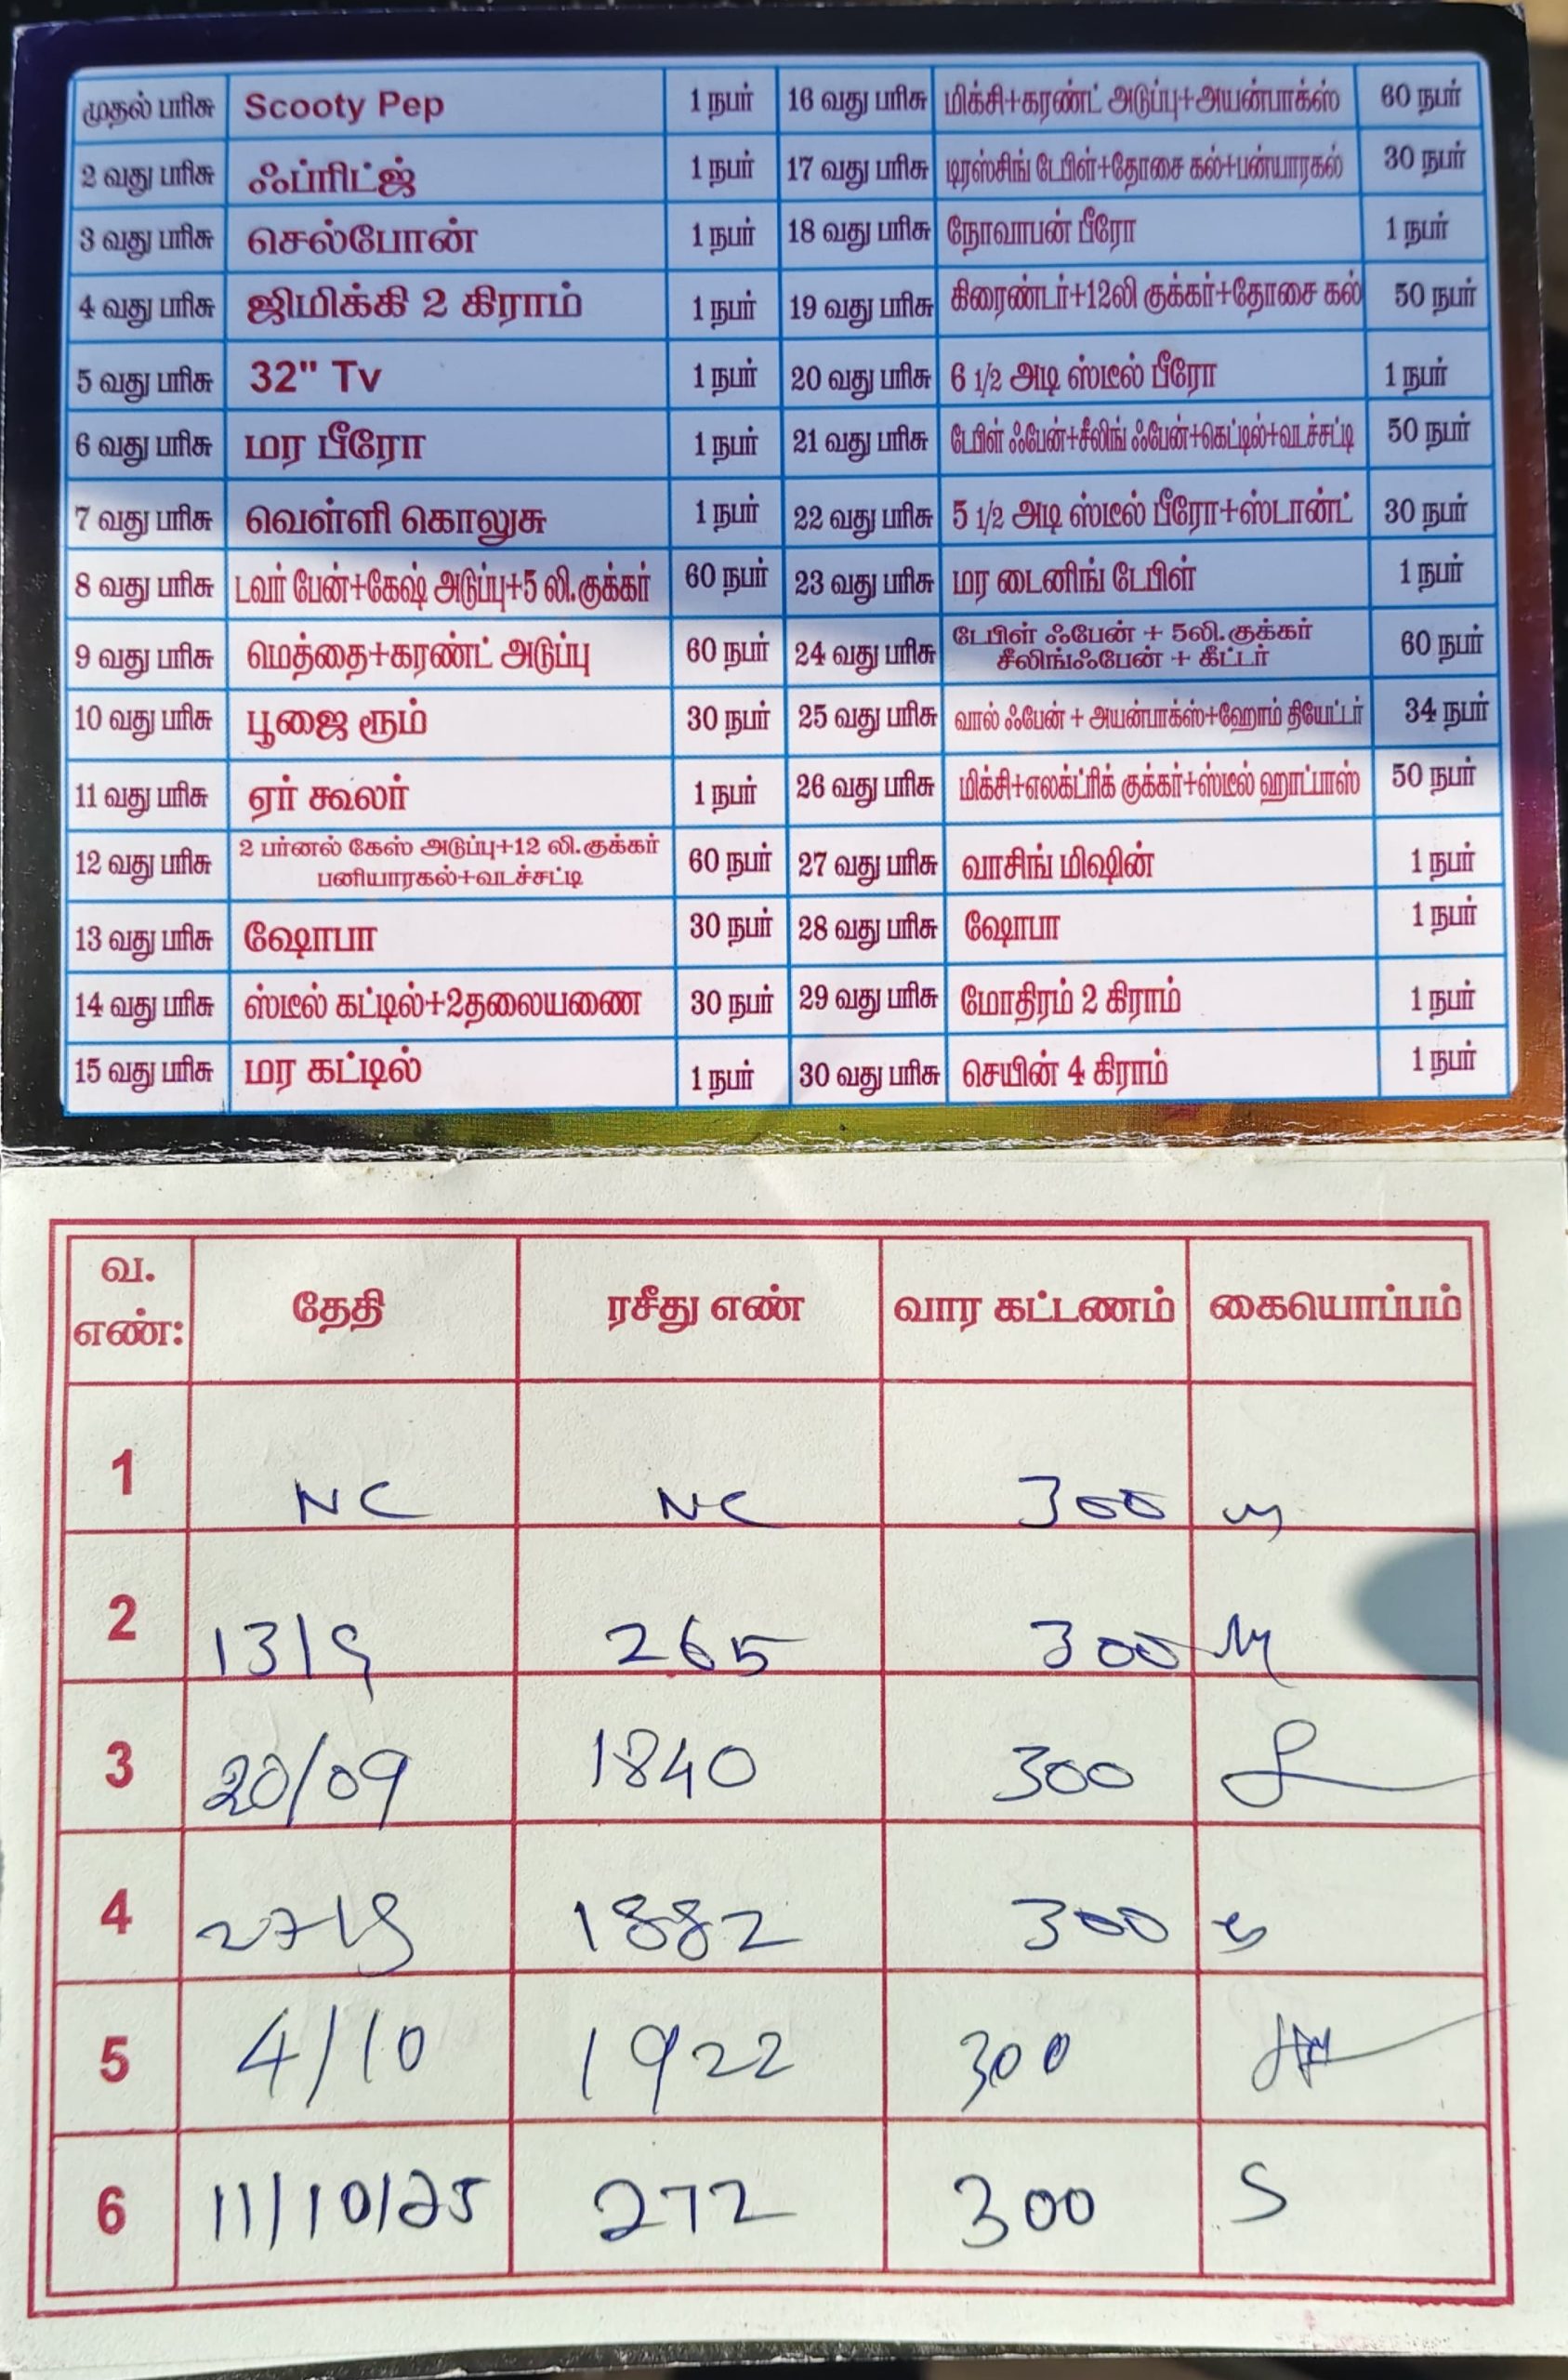 முதல் பரிசு Scooty Pep 1 நபர் 16 வது பரிசு மிக்சி+கரண்ட் அடுப்பு+அயன்பாக்ஸ் 60 நபர்
2 வது பரிசு ஃப்ரிட்ஜ் 1 நபர் 17 வது பரிசு டிரஸ்சிங் டேபிள்+தோசை கல்+பன்யாரகல் 30 நபர்
3 வது பரிசு செல்போன் 1 நபர் 18 வது பரிசு நோவாபன் பீரோ 1 நபர்
4 வது பரிசு ஜிமிக்கி 2 கிராம் 1 நபர் 19 வது பரிசு கிரைண்டர்+12லி குக்கர்+தோசை கல் 50 நபர்
5 வது பரிசு 32" Tv 1 நபர் 20 வது பரிசு 6 1/2 அடி ஸ்டீல் பீரோ 1 நபர்
6 வது பரிசு மர பீரோ 1 நபர் 21 வது பரிசு டேபிள் ஃபேன்+சீலிங் ஃபேன்+கெட்டில்+வடச்சட்டி 50 நபர்
7 வது பரிசு வெள்ளி கொலுசு 1 நபர் 22 வது பரிசு 5 1/2 அடி ஸ்டீல் பீரோ+ஸ்டாண்ட் 30 நபர்
8 வது பரிசு டவர் பேன்+கேஷ் அடுப்பு+5 லி.குக்கர் 60 நபர் 23 வது பரிசு மர டைனிங் டேபிள் 1 நபர்
9 வது பரிசு மெத்தை+கரண்ட் அடுப்பு 60 நபர் 24 வது பரிசு டேபிள் ஃபேன் + 5லி.குக்கர்
சீலிங்ஃபேன் + கீட்டர் 60 நபர்
10 வது பரிசு பூஜை ரூம் 30 நபர் 25 வது பரிசு வால் ஃபேன் + அயன்பாக்ஸ்+ஹோம் தியேட்டர் 34 நபர்
11 வது பரிசு ஏர் கூலர் 1 நபர் 26 வது பரிசு மிக்சி+எலக்ட்ரிக் குக்கர்+ஸ்டீல் ஹாட்பாஸ் 50 நபர்
12 வது பரிசு 2 பர்னல் கேஸ் அடுப்பு+12 லி.குக்கர்
பனியாரகல்+வடச்சட்டி 60 நபர் 27 வது பரிசு வாசிங் மிஷின் 1 நபர்
13 வது பரிசு ஷோபா 30 நபர் 28 வது பரிசு ஷோபா 1 நபர்
14 வது பரிசு ஸ்டீல் கட்டில்+2தலையணை 30 நபர் 29 வது பரிசு மோதிரம் 2 கிராம் 1 நபர்
15 வது பரிசு மர கட்டில் 1 நபர் 30 வது பரிசு செயின் 4 கிராம் 1 நபர்
வ.
எண்: தேதி ரசீது எண் வார கட்டணம் கையொப்பம்
1 NC NC 300
2 13/9 265 300
3 20/09 1840 300
4 27/9 1882 300
5 4/10 1922 300
6 11/10/25 272 300 S